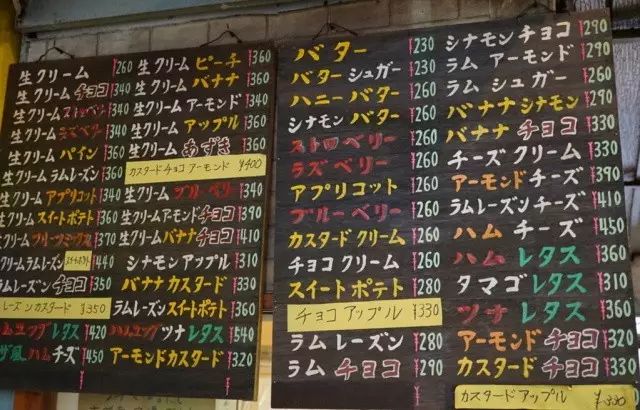 生クリーム ¥260
生クリーム チョコ ¥340
生クリーム ストロベリー 340
生クリーム ラズベリー ¥340
生クリーム パイン ¥360
生クリーム ラムレーズン ¥360
生クリーム アプリコット ¥340
生クリーム スイートポテト ¥360
クリーム フルーツミックス ¥370
クリームラムレーズン スイートポテト ¥410
ラムレーズン チョコ ¥350
レーズンカスタード ¥350
ハムエッグ レタス ¥420
ハム チーズ ¥450
生クリーム ピーチ ¥360
生クリーム バナナ ¥360
生クリーム アーモンド ¥340
生クリーム アップル ¥360
生クリーム あずき ¥360
カスタード チョコ アーモンド ¥400
生クリーム ブルーベリー ¥340
生クリーム アーモンド チョコ ¥390
生クリーム バナナ チョコ ¥410
シナモン アップル ¥310
バナナ カスタード ¥330
ラムレーズン スイートポテト ¥360
ハムエッグ ツナ レタス ¥540
アーモンドカスタード ¥320
バター ¥230
バター シュガー ¥230
ハニー バター ¥260
シナモン バター ¥260
ストロベリー ¥260
ラズベリー ¥260
アプリコット ¥260
ブルーベリー ¥260
カスタード クリーム ¥260
チョコ クリーム ¥260
スイート ポテト ¥280
チョコ アップル ¥330
ラム レーズン ¥290
ラム チョコ ¥280
シナモン チョコ ¥290
ラム アーモンド ¥290
ラム シュガー ¥260
バナナ シナモン ¥290
バナナ チョコ ¥330
チーズ クリーム ¥330
アーモンド チーズ ¥390
ラムレーズン チーズ ¥410
ハム チーズ ¥450
ハム レタス ¥310
タマゴ レタス ¥310
ツナ レタス ¥360
アーモンド チョコ ¥320
カスタード チョコ ¥330
カスタード アップル ¥330